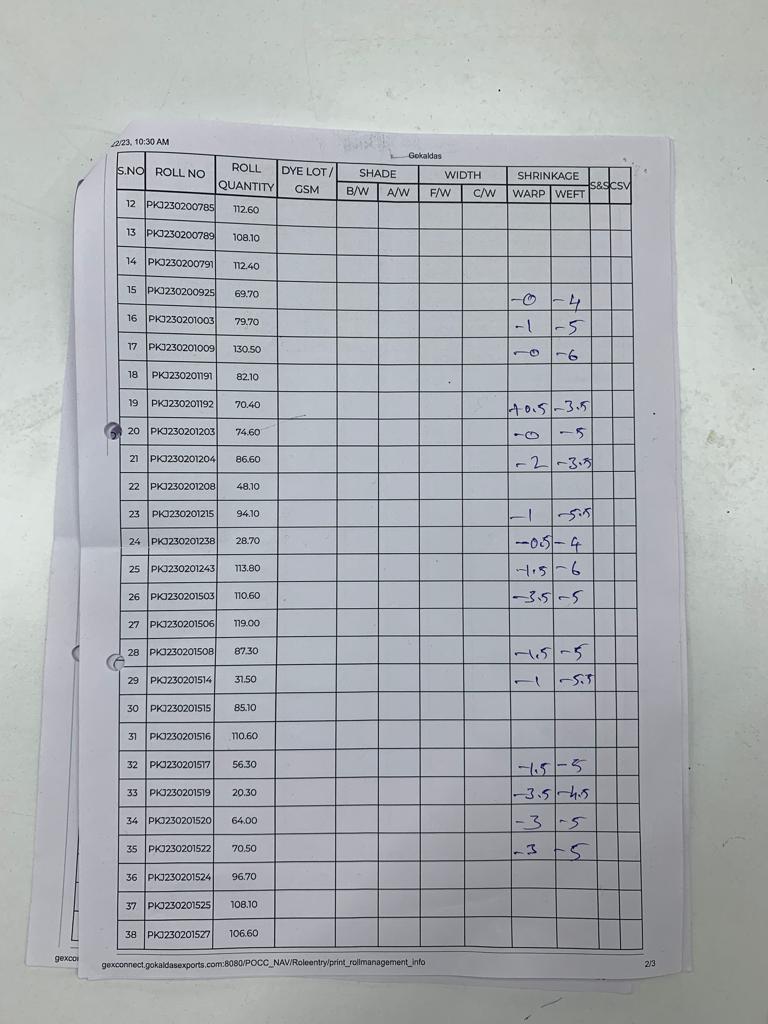 22/23, 10:30 AM
Gokaldas
S.NO ROLL NO ROLL QUANTITY DYE LOT / GSM SHADE WIDTH SHRINKAGE S&S CSV
B/W A/W F/W C/W WARP WEFT
12 PKJ230200785 112.60
13 PKJ230200789 108.10
14 PKJ230200791 112.40
15 PKJ230200925 69.70 -0 -4
16 PKJ230201003 79.70 -1 -5
17 PKJ230201009 130.50 -0 -6
18 PKJ230201191 82.10
19 PKJ230201192 70.40 +0.5 -3.5
20 PKJ230201203 74.60 -0 -5
21 PKJ230201204 86.60 -2 -3.5
22 PKJ230201208 48.10
23 PKJ230201215 94.10 -1 -5.5
24 PKJ230201238 28.70 -0.5 -4
25 PKJ230201243 113.80 -1.5 -6
26 PKJ230201503 110.60 -3.5 -5
27 PKJ230201506 119.00
28 PKJ230201508 87.30 -1.5 -5
29 PKJ230201514 31.50 -1 -5.5
30 PKJ230201515 85.10
31 PKJ230201516 110.60
32 PKJ230201517 56.30 -1.5 -5
33 PKJ230201519 20.30 -3.5 -4.5
34 PKJ230201520 64.00 -3 -5
35 PKJ230201522 70.50 -3 -5
36 PKJ230201524 96.70
37 PKJ230201525 108.10
38 PKJ230201527 106.60
gexcon
gexconnect.gokaldasexports.com:8080/POCC_NAV/Roleentry/print_rollmanagement_info 2/3